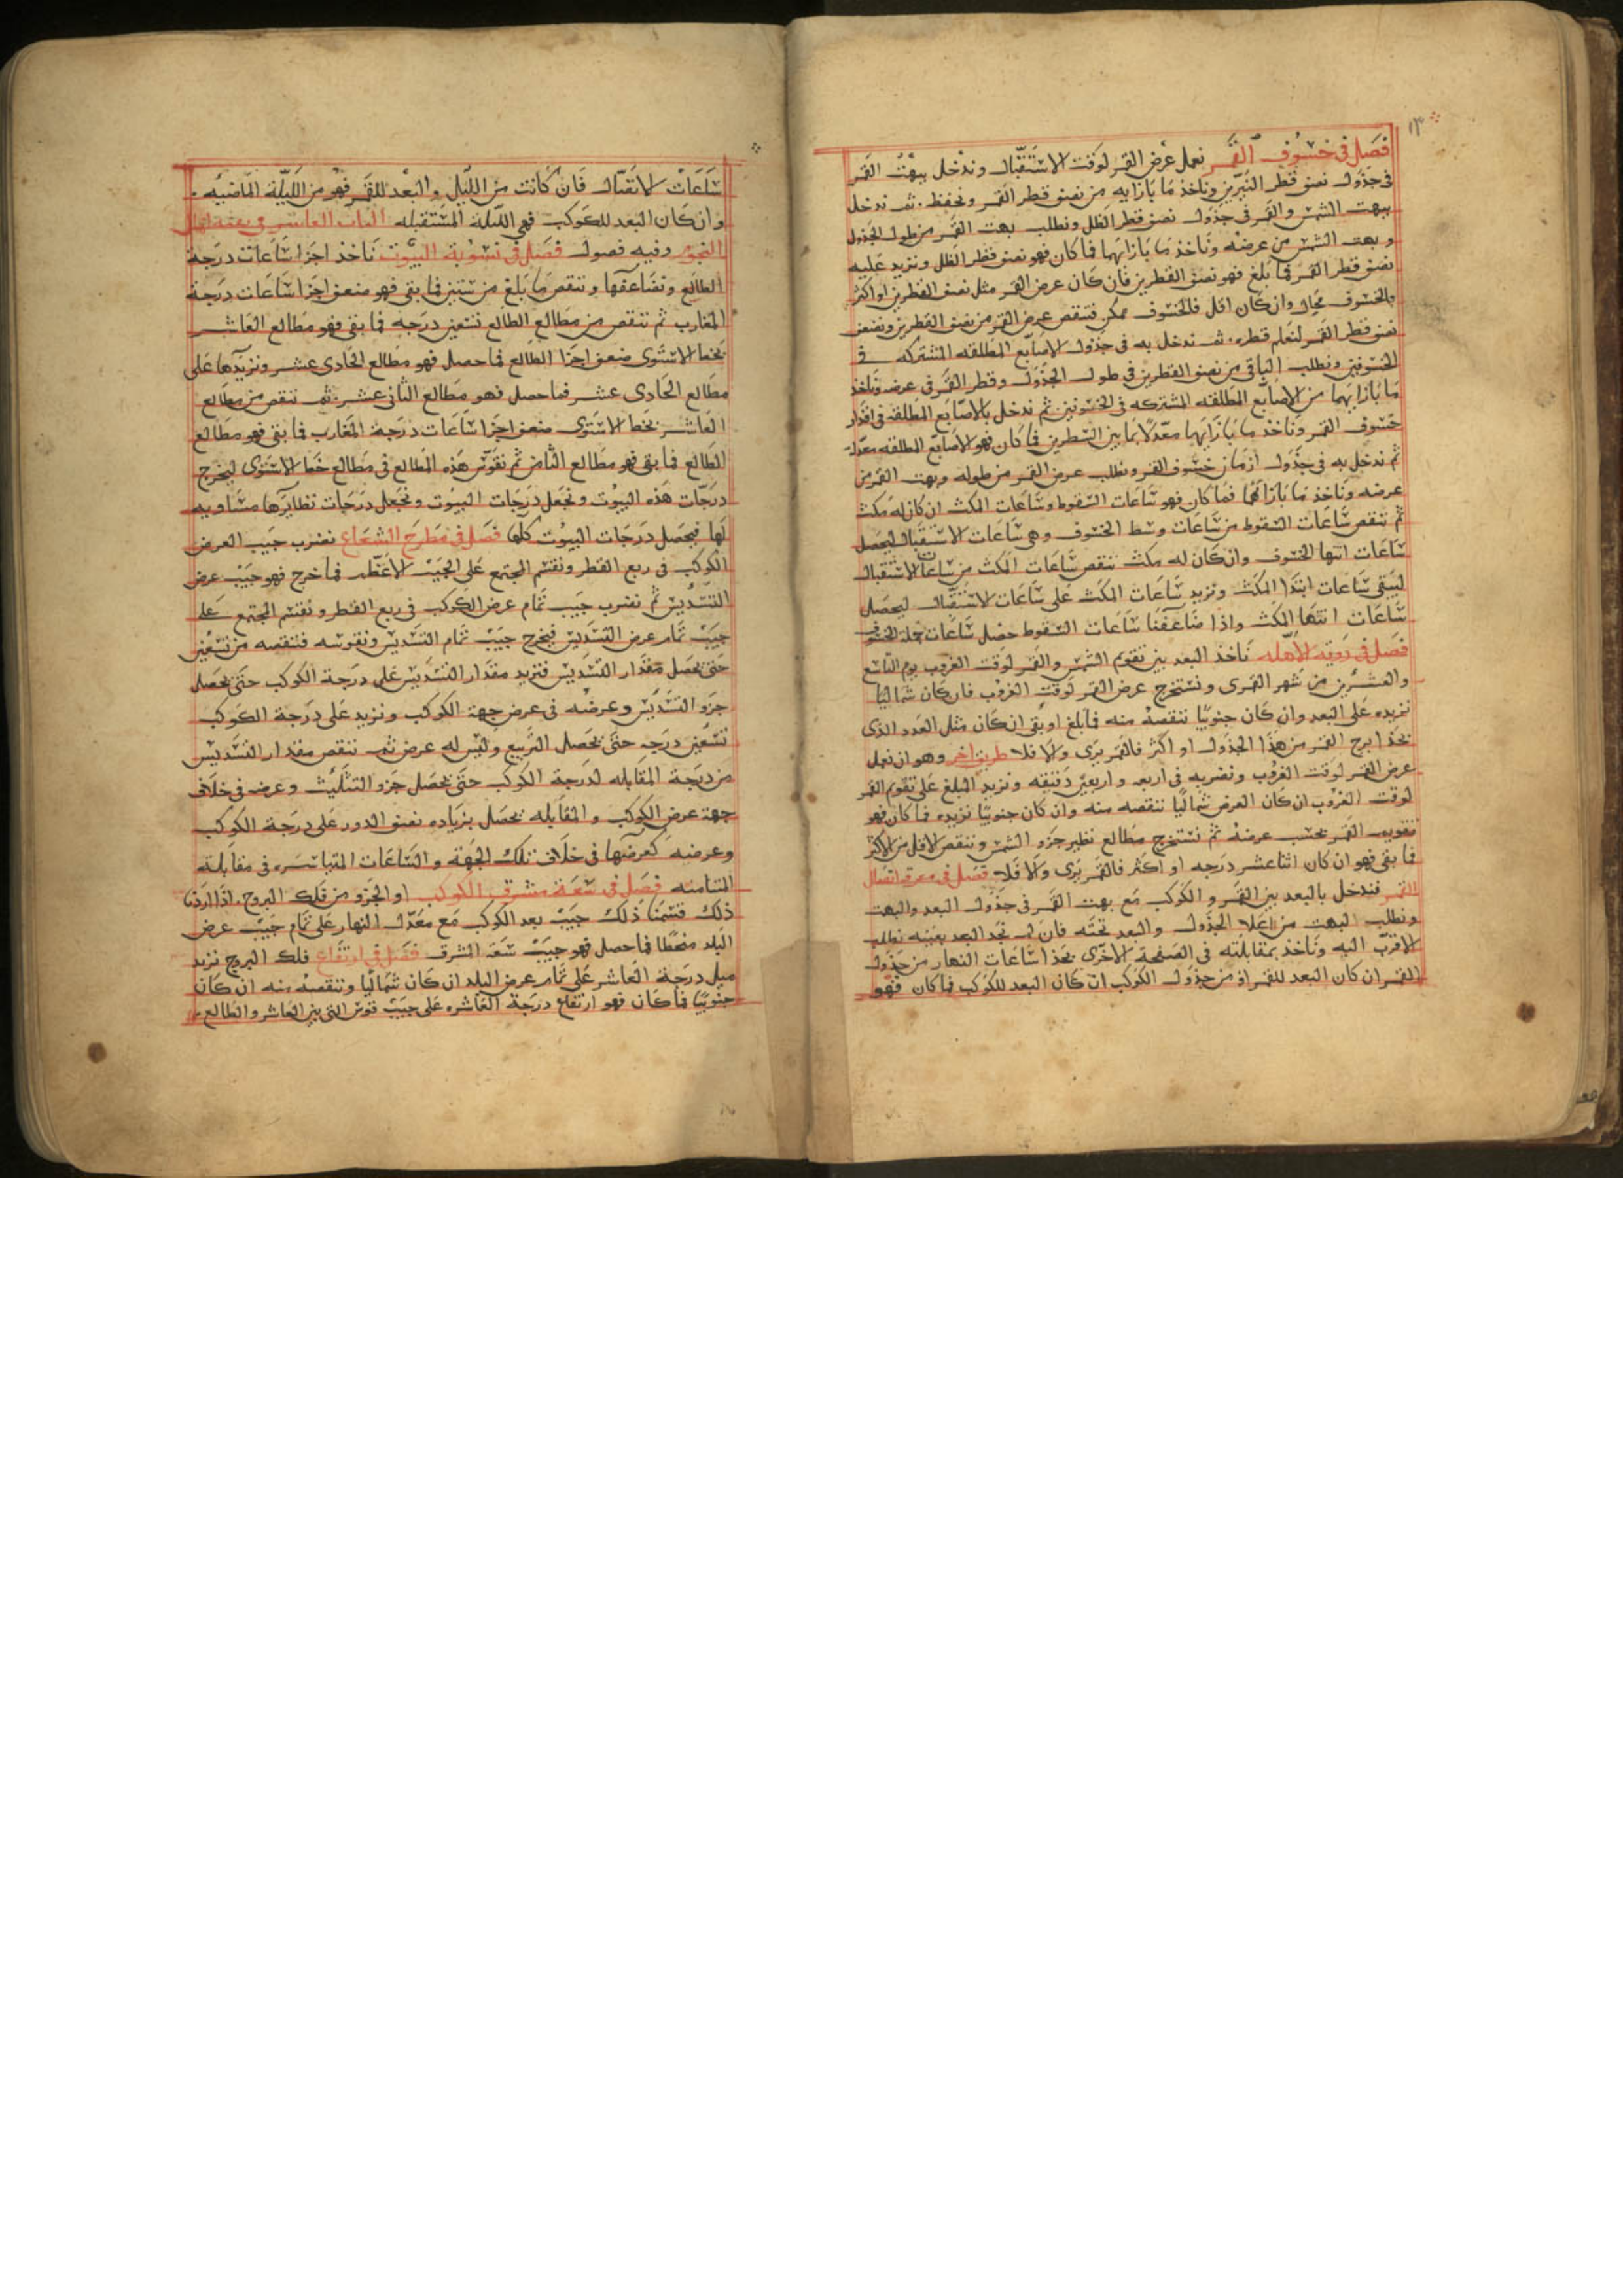 ١٣
فصل في خسوف القمر نعمل عرض القمر لوقت الاستقبال وندخل ببهت القمر
في جدول نصف قطر النيرين وناخذ ما بازايه من نصف قطر القمر ونحفظه ثم ندخل
ببهت الشمس والقمر في جدول نصف قطر الظل ونطلب بهت القمر من طول الجدول
وبهت الشمس من عرضه وناخذ ما بازايهما فما كان فهو نصف قطر الظل ونزيد عليه
نصف قطر القمر فما بلغ فهو نصف القطرين فان كان عرض القمر مثل نصف القطرين او اكثر
فالخسوف محال وان كان اقل فالخسوف ممكن فننقص عرض القمر من نصف القطرين ونضعف
نصف قطر القمر لنعلم قطره ثم ندخل به في جدول الاصابع المطلقه المشتركه في
الخسوفين ونطلب الباقي من نصف القطرين في طول الجدول وقطر القمر في عرضه وناخذ
ما بازايهما من الاصابع المطلقه المشتركه في الخسوفين ثم ندخل بالاصابع المطلقه في اقدار
خسوف القمر وناخذ ما بازايهما معدلا بما بين السطرين فما كان فهو الاصابع المطلقه معدله
ثم ندخل به في جدول ازمان خسوف القمر ونطلب عرض القمر من طوله وبهت القمر من
عرضه وناخذ ما بازائهما فما كان فهو ساعات السقوط وساعات المكث ان كان له مكث
ثم ننقص ساعات السقوط من ساعات وسط الخسوف وهي ساعات الاستقبال ليحصل
ساعات انتها الخسوف وان كان له مكث ننقص ساعات المكث من ساعات الاستقبال
ليبقى ساعات ابتدا المكث ونزيد ساعات المكث على ساعات الاستقبال ليحصل
ساعات انتها المكث واذا ضاعفنا ساعات السقوط حصل ساعات جملة الخسوف
فصل في روية الاهله ناخذ البعد بين تقويم الشمس والقمر لوقت الغروب يوم التاسع
والعشرين من شهر القمرى ونستخرج عرض القمر لوقت الغروب فان كان شماليا
نزيده على البعد وان كان جنوبيا ننقصه منه فما بلغ او بقى ان كان مثل العدد الذى
بحذا برج القمر من هذا الجدول او اكثر فالقمر يرى والا فلا طريق اخر وهو ان نعمل
عرض القمر لوقت الغروب ونضربه في اربعه واربعين دقيقه ونزيد المبلغ على تقويم القمر
لوقت الغروب ان كان العرض شماليا ننقصه منه وان كان جنوبيا نزيده فما كان فهو
تقويم القمر بحسب عرضه ثم نستخرج مطالع نظير جزو الشمس وننقص الاقل من الاكثر
فما بقي فهو ان كان اثنا عشر درجه او اكثر فالقمر يرى والا فلا فصل في معرفه اتصال
القمر فندخل بالبعد بين القمر والكوكب مع بهت القمر في جدول البعد والبهت
ونطلب البهت من اعلا الجدول والبعد تحته فان لم نجد البعد بعينه نطلب
الاقرب اليه وناخذ بمقابلته في الصفحة الاخرى بحذا ساعات النهار من جدول
القمر ان كان البعد للقمر او من جدول الكوكب ان كان البعد للكوكب فما كان فهو
ساعات الاتصال فان كانت من الليل والبعد للقمر فهو من الليلة الماضيه
وان كان البعد للكوكب فهي الليلة المستقبله الباب العاشر في بقية اعمال
النجوم وفيه فصول فصل في تسوية البيوت ناخذ اجزا ساعات درجة
الطالع ونضاعفها وننقص ما بلغ من ستين فما بقي فهو ضعف اجزا ساعات درجة
المغارب ثم ننقص من مطالع الطالع تسعين درجه فما بقي فهو مطالع العاشر
بخط الاستوى ضعف اجزا الطالع فما حصل فهو مطالع الحادى عشر ونزيدها على
مطالع الحادى عشر فما حصل فهو مطالع الثانى عشر ثم ننقص من مطالع
العاشر بخط الاستوى ضعف اجزا ساعات درجة المغارب فما بقي فهو مطالع
الطالع فما بقي فهو مطالع الثامن ثم نقوس هذه المطالع في مطالع خط الاستوى ليخرج
درجات هذه البيوت ونجعل درجات البيوت ونجعل درجات نظايرها مساويه
لها فيحصل درجات البيوت كلها فصل في مطرح الشعاع نضرب جيب العرض
الكوكب في ربع القطر ونقسم المجتمع على الجيب الاعظم فما خرج فهو جيب عرض
التسديس ثم نضرب جيب تمام عرض الكوكب في ربع القطر ونقسم المجتمع على
جيب تمام عرض التسديس فيخرج جيب تمام التسديس ونقوسه فننقصه من تسعين
حتى يحصل مقدار التسديس فنزيد مقدار التسديس على درجة الكوكب حتى يحصل
جزو التسديس وعرضه في عرض جهة الكوكب ونزيد على درجة الكوكب
تسعين درجه حتى يحصل التربيع وليس له عرض ثم ننقص مقدار التسديس
من درجة المقابله لدرجة الكوكب حتى يحصل جزو التثليث وعرضه في خلاف
جهة عرض الكوكب والمقابله يحصل بزياده نصف الدور على درجة الكوكب
وعرضه كعرضها في خلاف تلك الجهة والساعات المتياسره في مقابلة
المتيامنه فصل في سعة مشرق الكوكب او الجزو من فلك البروج اذا اردنا
ذلك قسمنا ذلك جيب بعد الكوكب مع معدل النهار على تمام جيب عرض
البلد منحطا فما حصل فهو جيب سعة المشرق فصل في ارتفاع فلك البروج نزيد
ميل درجة العاشر على تمام عرض البلد ان كان شماليا وننقصه منه ان كان
جنوبيا فما كان فهو ارتفاع درجة العاشره على جيب قوس التى بين العاشر والطالع